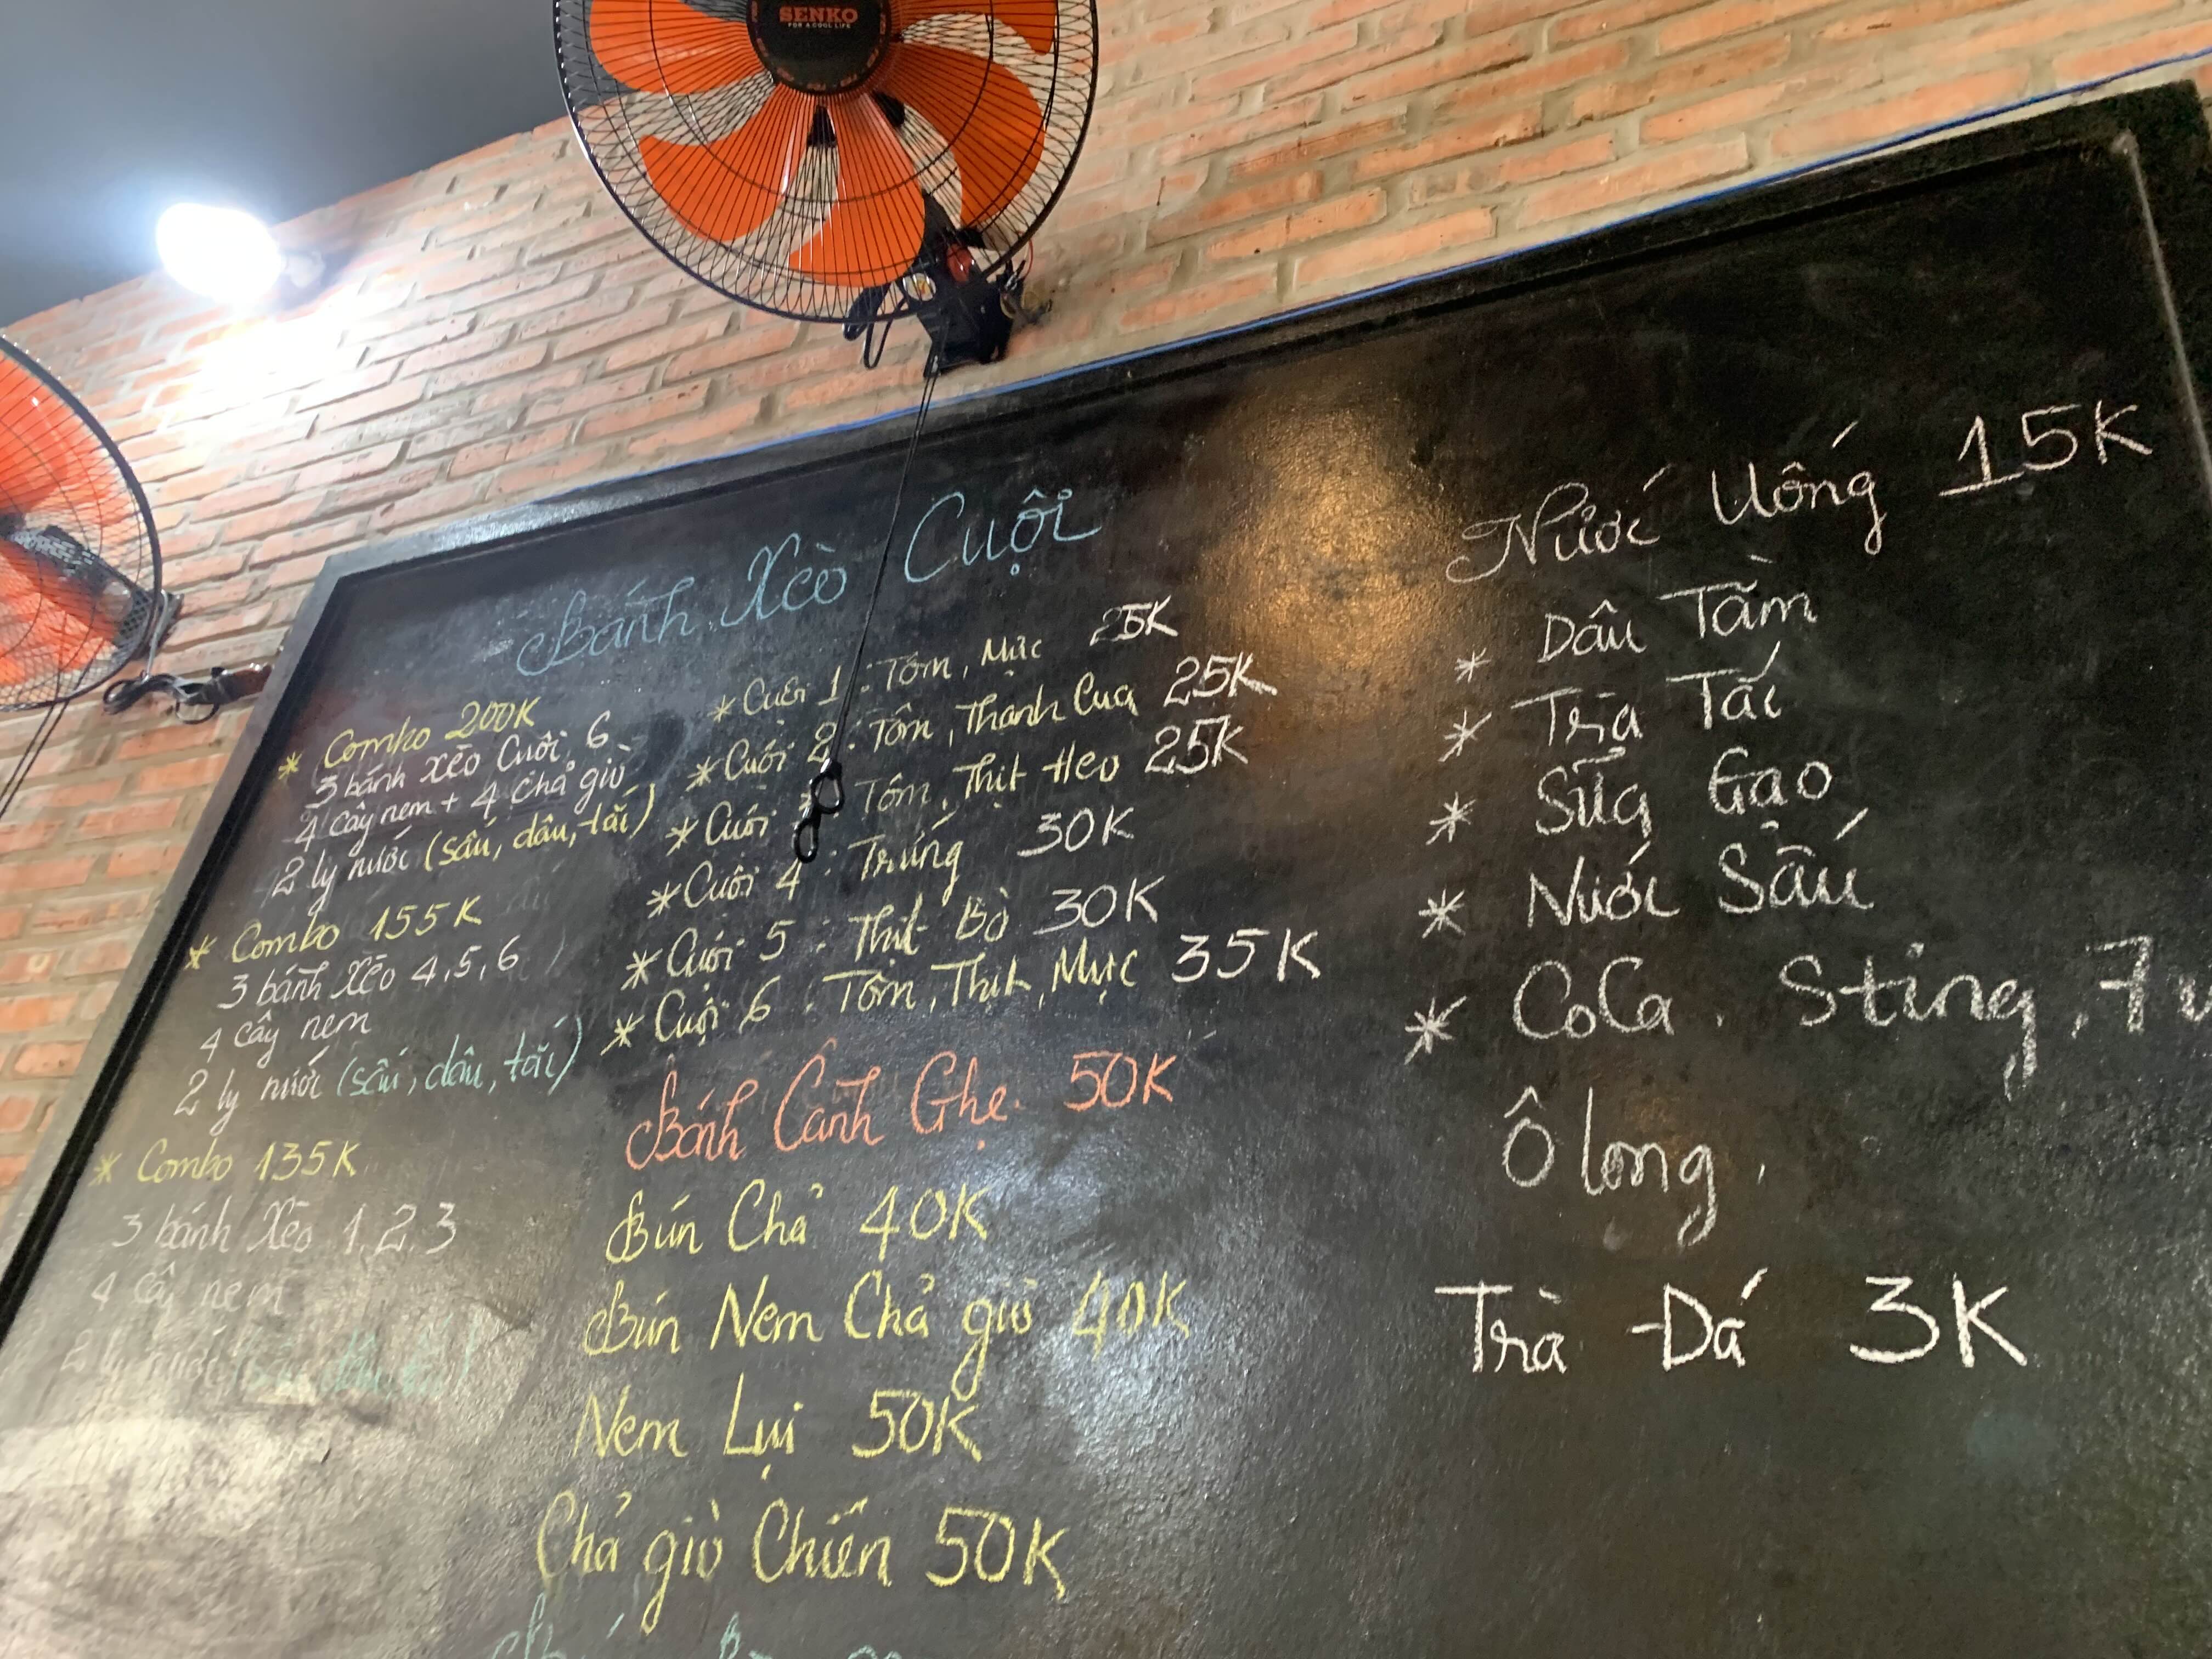 SENKO
FOR A COOL LIFE
Bánh Xèo Cuội
* Combo 200K
3 bánh xèo Cuội 6
4 cây nem + 4 chả giò
2 ly nước (sấu, dâu, tắc)
* Combo 155K
3 bánh xèo 4, 5, 6
4 cây nem
2 ly nước (sấu, dâu, tắc)
* Combo 135K
3 bánh xèo 1, 2, 3
4 cây nem
2 ly nước (sấu, dâu, tắc)
* Cuội 1 : Tôm, Mực 25K
* Cuội 2 : Tôm, Thanh Cua 25K
* Cuội Tôm, Thịt Heo 25K
* Cuội 4 : Trứng 30K
* Cuội 5 : Thịt Bò 30K
* Cuội 6 : Tôm, Thịt, Mực 35K
Bánh Canh Ghẹ 50K
Bún Chả 40K
Bún Nem Chả giò 40K
Nem Lụi 50K
Chả giò Chiên 50K
Nước Uống 15K
* Dâu Tằm
* Trà Tắc
* Sữa Gạo
* Nước Sấu
* CoCa, Sting, 7
Ô long,
Trà Đá 3K